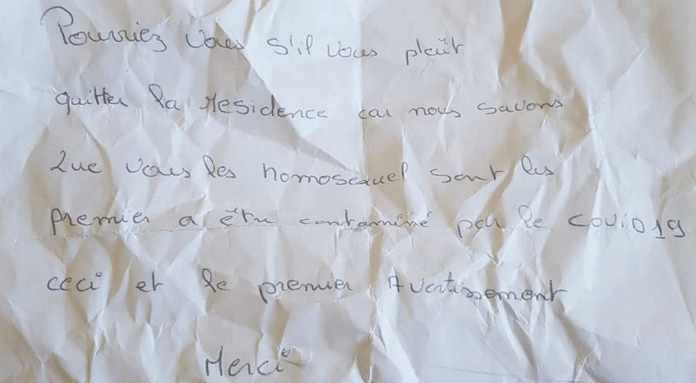 Pourriez vous s'il vous plaît
quitter la residence car nous savons
que vous les homosexuel sont les
premier a être contaminé par le COVID19
ceci et le premier Avertissement
Merci